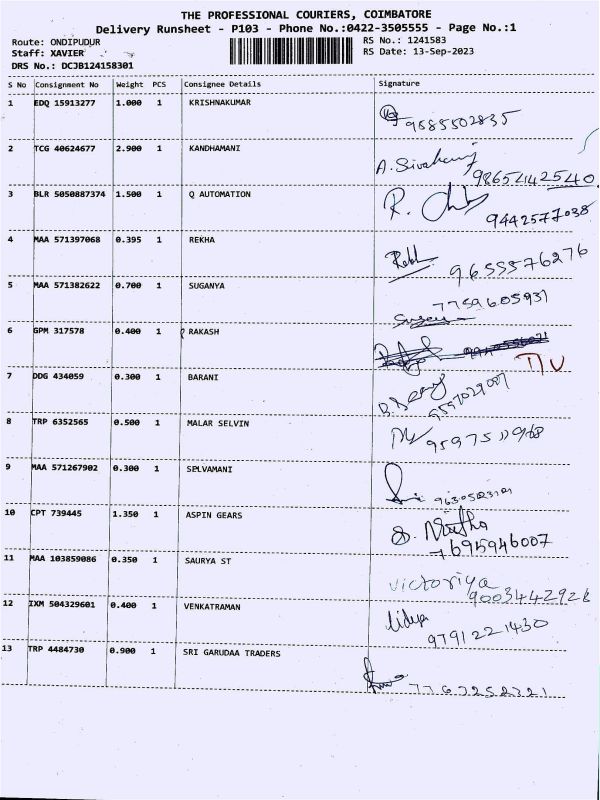 THE PROFESSIONAL COURIERS, COIMBATORE
Delivery Runsheet - P103 - Phone No.:0422-3505555 - Page No.:1
Route: ONDIPUDUR
Staff: XAVIER
DRS No.: DCJB124158301
RS No.: 1241583
RS Date: 13-Sep-2023
S No Consignment No Weight PCS Consignee Details Signature
1 EDQ 15913277 1.000 1 KRISHNAKUMAR
9585502835
2 TCG 40624677 2.900 1 KANDHAMANI
A. Sivahamy
98654142540
3 BLR 5050887374 1.500 1 Q AUTOMATION R.
9442577038
4 MAA 571397068 0.395 1 REKHA
9655576276
5 MAA 571382622 0.700 1 SUGANYA 7759605931
6 GPM 317578 0.400 1 RAKASH
7 DDG 434059 0.300 1 BARANI
9597029007
8 TRP 6352565 0.500 1 MALAR SELVIN
9597511968
9 MAA 571267902 0.300 1 SELVAMANI
10 CPT 739445 1.350 1 ASPIN GEARS
7695946007
11 MAA 103859086 0.350 1 SAURYA ST
victoriya
9003442926
12 IXM 504329601 0.400 1 VENKATRAMAN
Lidya
9791221430
13 TRP 4484730 0.900 1 SRI GARUDAA TRADERS
7763252321